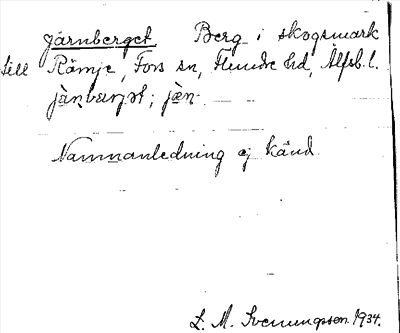 Järnberget Berg i skogsmark
till Rämje, Fors sn, Flundre hd, Älfsb. l.
jä̀nbærjət; jæn-
Namnanledning ej känd
L. M. Svenungsson 1934.